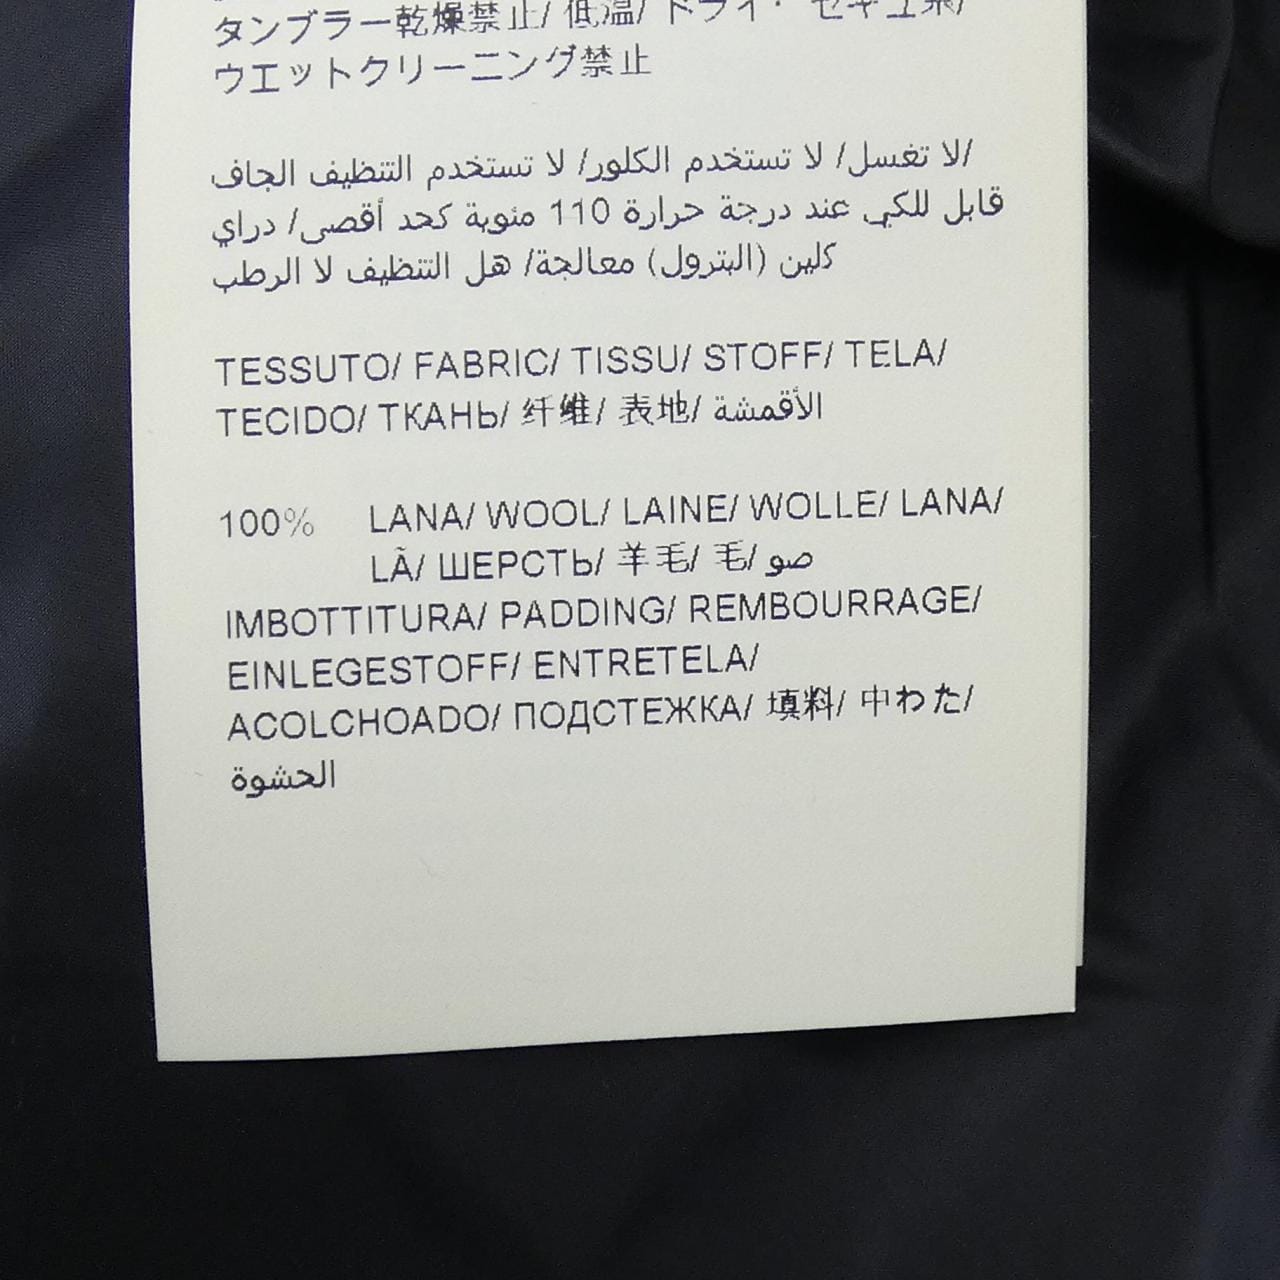 タンブラー乾燥禁止/ 低温/ ドライ・セキユ系/
ウエットクリーニング禁止
لا تغسل/ لا تستخدم الكلور/ لا تستخدم التنظيف الجاف/
قابل للكي عند درجة حرارة 110 مئوية كحد أقصى/ دراي
كلين (البترول) معالجة/ هل التنظيف لا الرطب
TESSUTO/ FABRIC/ TISSU/ STOFF/ TELA/
TECIDO/ ТКАНЬ/ 纤维/ 表地/ الأقمشة
100% LANA/ WOOL/ LAINE/ WOLLE/ LANA/
LÃ/ ШЕРСТЬ/ 羊毛/ 毛/ صو
IMBOTTITURA/ PADDING/ REMBOURRAGE/
EINLEGESTOFF/ ENTRETELA/
ACOLCHOADO/ ПОДСТЕЖКА/ 填料/ 中わた/
الحشوة